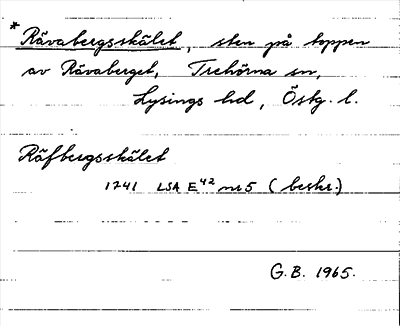 * Rävabergsskälet, sten på toppen
av Rävaberget, Trehörna sn,
Lysings hd, Östg. l.
Räfbergsskälet
1741 LSA E42 nr 5 (beskr.)
G.B. 1965.